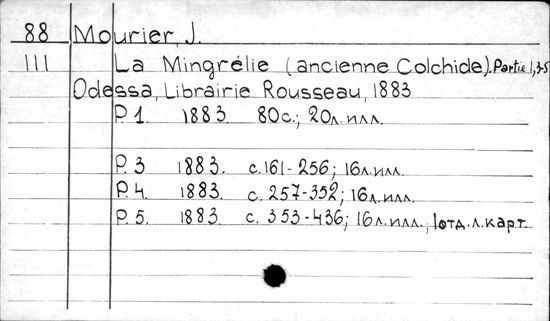 88 Mourier, J.
111 La Mingrélie (ancienne Colchide). Partie 1,3-5
Odessa, Librairie Rousseau, 1883
P. 1. 1883. 80с.; 20л. илл.
P. 3 1883. с.161-256; 16л. илл.
P. 4. 1883. с. 257-352; 16л. илл.
P. 5. 1883. с. 353-436; 16л. илл., 1отд. л. карт.